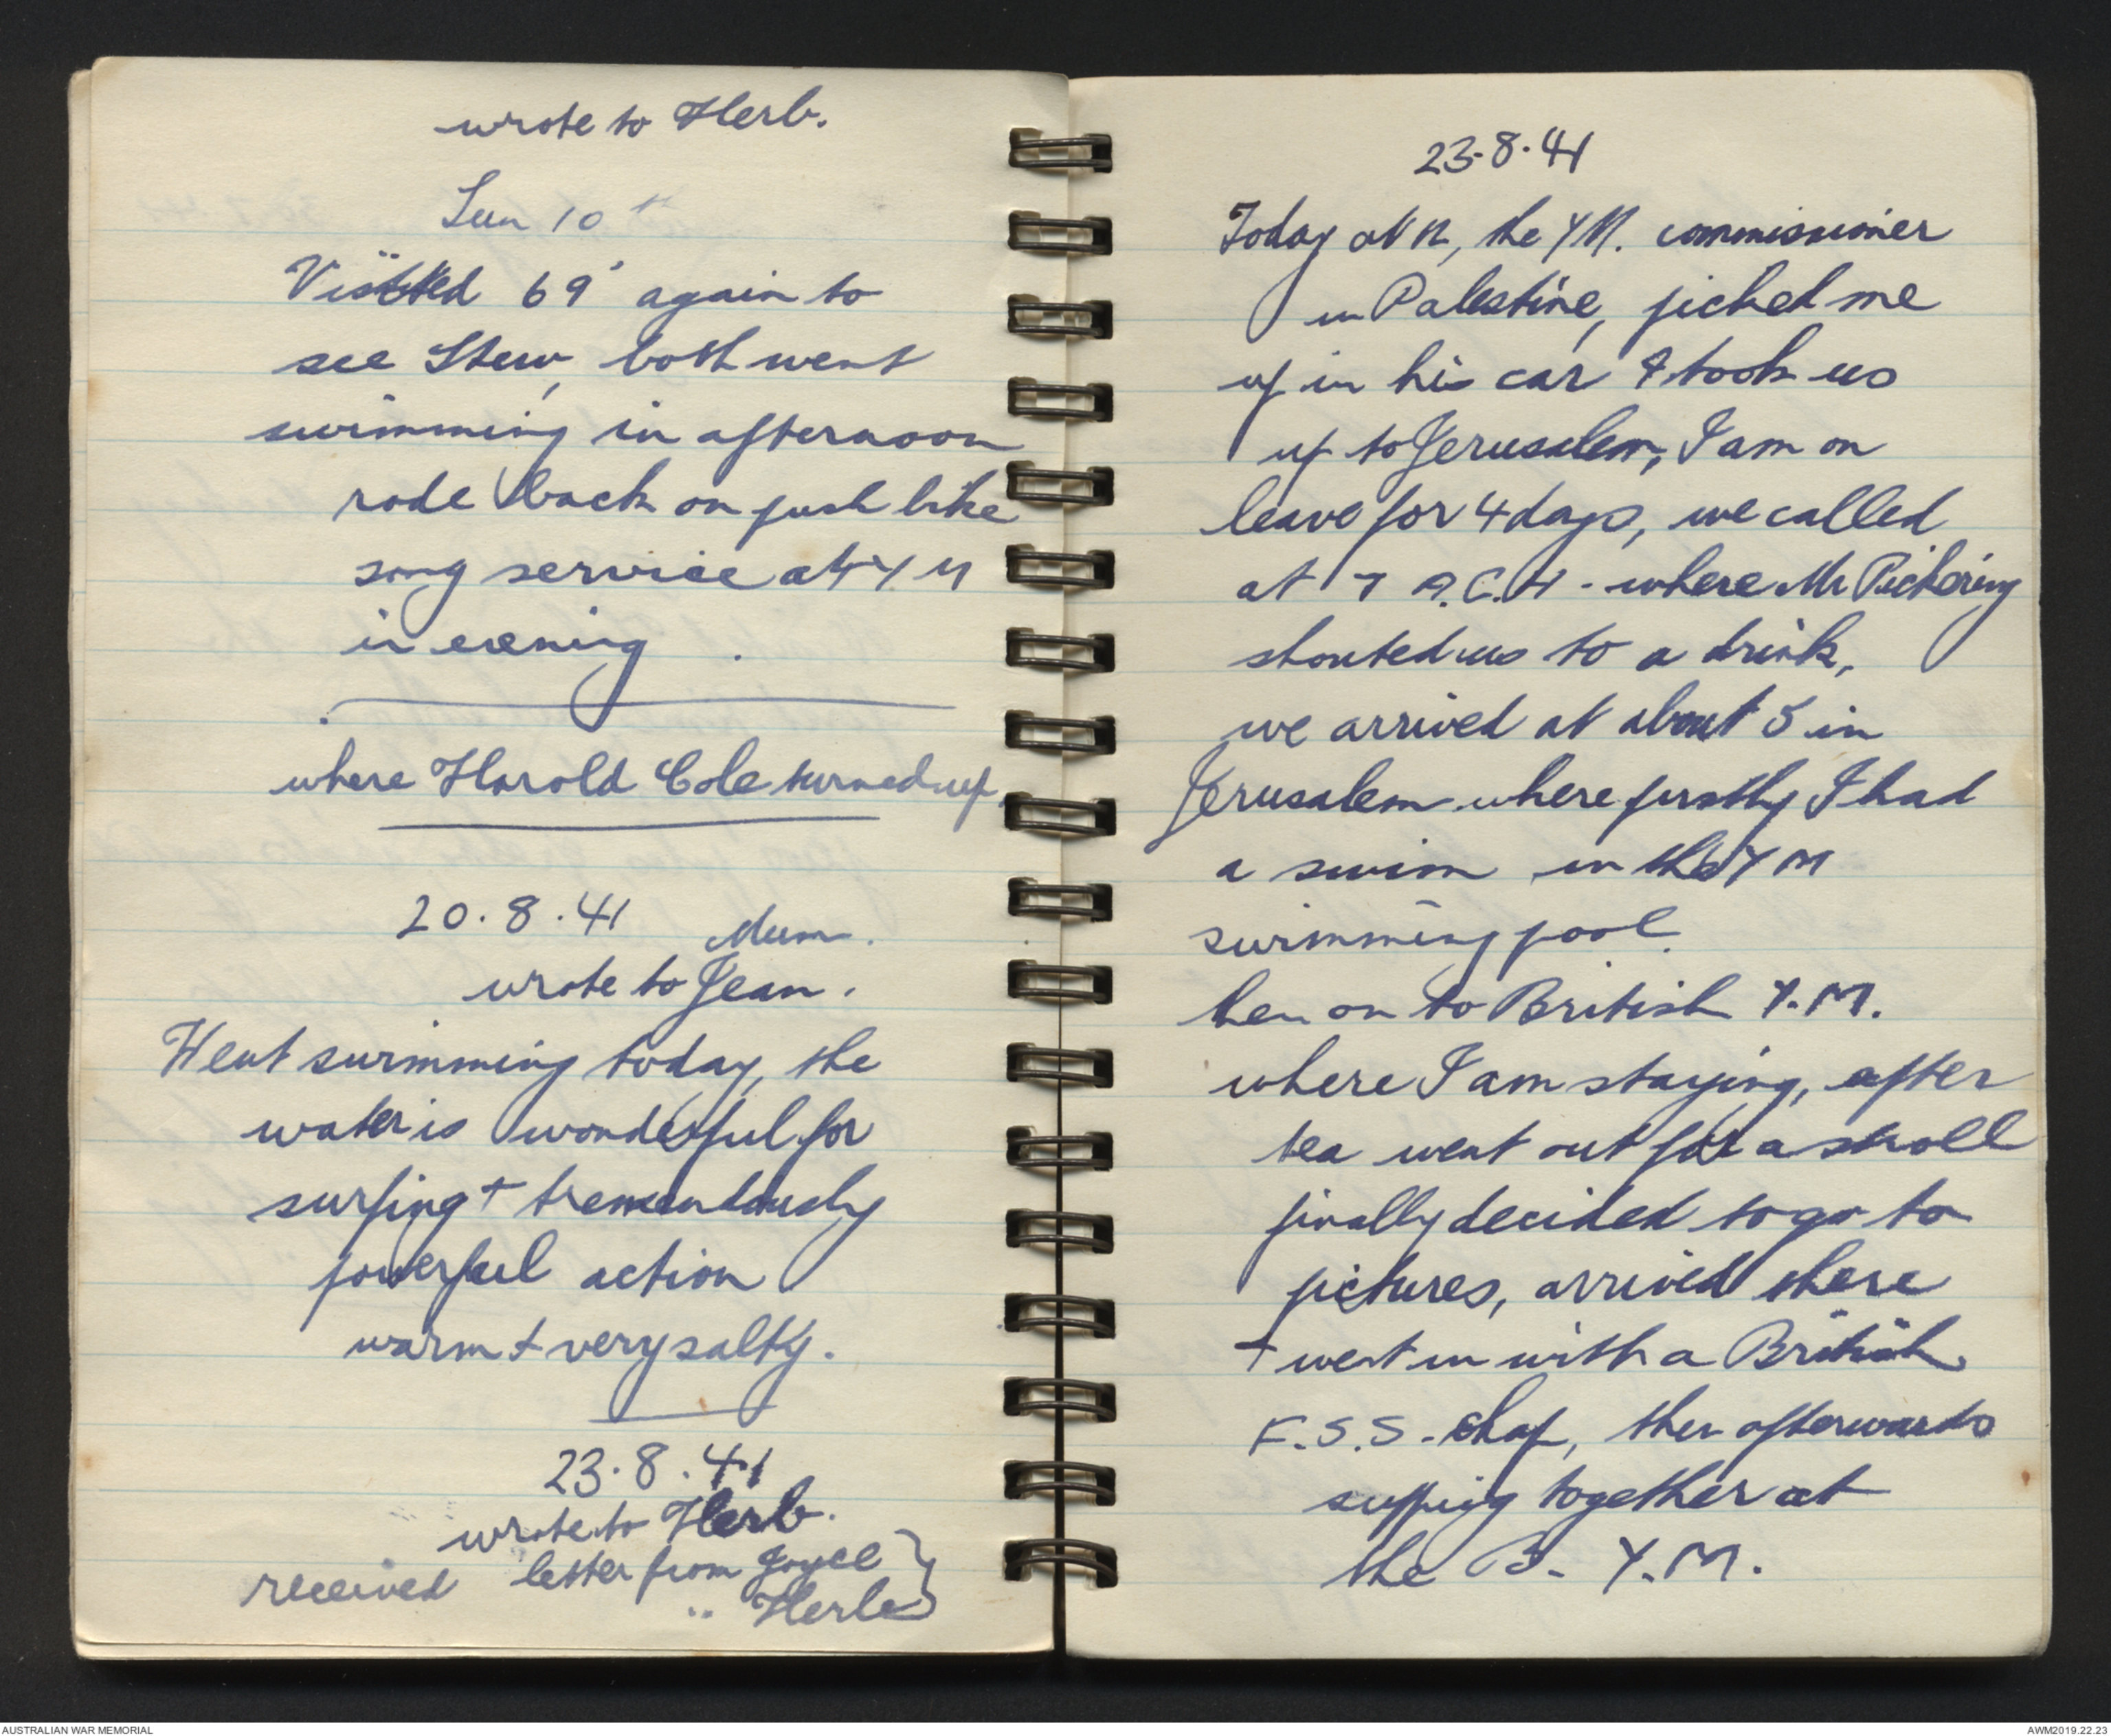 wrote to Herb.
Sun 10th
Visited 69' again to
see Stew, both went
swimming in afternoon
rode back on push bike
song service at Y M
in evening .
where Harold Cole turned up,
20.8.41 Mum.
wrote to Jean.
Went swimming today, the
water is wonderful for
surfing + tremendously
powerful action
warm + very salty.
23.8.41
wrote to Herb.
received letter from Joyce
" Herb
23.8.41
Today at 12, the YM. commissioner
in Palestine, picked me
up in his car & took us
up to Jerusalem, I am on
leave for 4 days, we called
at T A.C.H - where Mr Pickering
shouted us to a drink,
we arrived at about 5 in
Jerusalem where firstly I had
a swim in the Y M
swimming pool.
hen on to British Y.M.
where I am staying, after
tea went out for a stroll
finally decided to go to
pictures, arrived there
+ went in with a British
F.S.S. chap, then afterwards
supping together at
the B. Y.M.
AUSTRALIAN WAR MEMORIAL
AWM2019.22.23